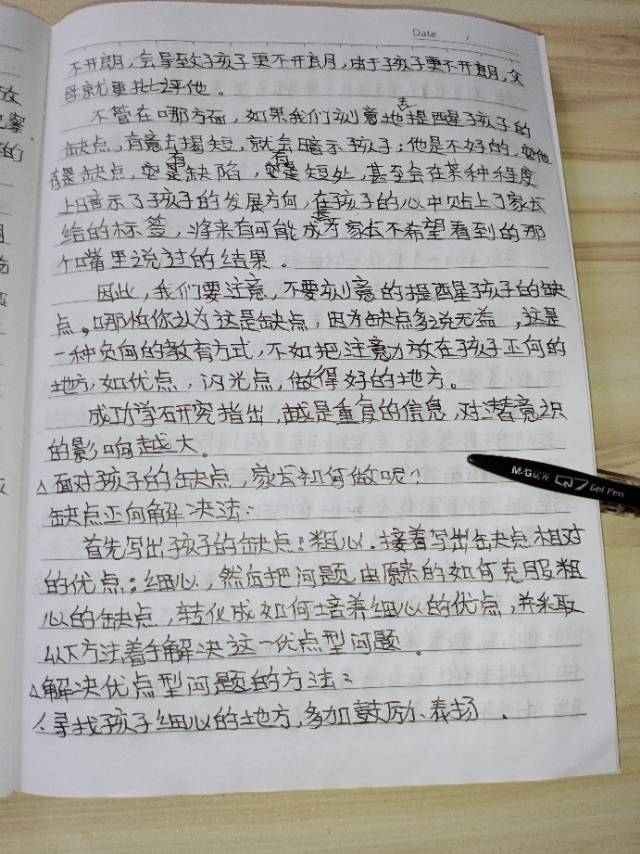 Date /
不开朗,会导致孩子更不开朗,由于孩子更不开朗,父
母就更批评他。
不管在哪方面,如果我们刻意地去提醒孩子的
缺点,有意去揭短,就会暗示孩子:他是不好的,他
有缺点,有缺陷,有短处,甚至会在某种程度
上暗示了孩子的发展方向,在孩子的心中贴上了家长
给的标签,将来有可能成为家长不希望看到的那
个嘴里说过的结果。
因此,我们要注意,不要刻意的提醒孩子的缺
点。哪怕你认为这是缺点,因为缺点多说无益,这是
一种负向的教育方式,不如把注意力放在孩子正向的
地方,如优点,闪光点,做得好的地方。
成功学研究指出,越是重复的信息,对潜意识
的影响越大。
△面对孩子的缺点,家长如何做呢?
缺点正向解决法:
首先写出孩子的缺点:粗心.接着写出缺点相对
的优点:细心,然后把问题由原来的如何克服粗
心的缺点,转化成如何培养细心的优点,并采取
以下方法着手解决这一优点型问题。
△解决优点型问题的方法:
1.寻找孩子细心的地方,多加鼓励、表扬.
M&G Gel Pen